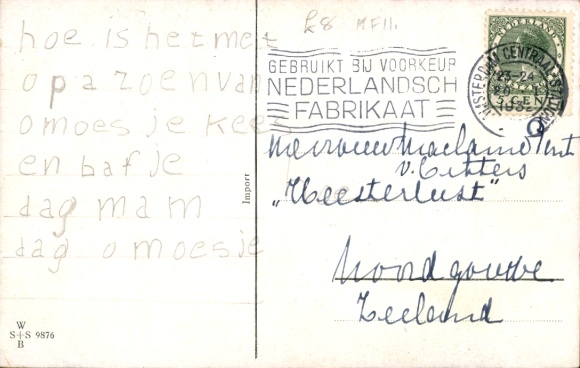 hoe is het met
opa zoen van
omoesje kees
en bafje
dag mam
dag omoesje
W
S+S 9876
B
Import
£8 MF11.
GEBRUIKT BIJ VOORKEUR
NEDERLANDSCH
FABRIKAAT
NEDERLAND
AMSTERDAM CENTRAAL STATION
23-24
CENT
Mevrouw
v. Citters
„Heesterlust"
Noordgouwe
Zeeland